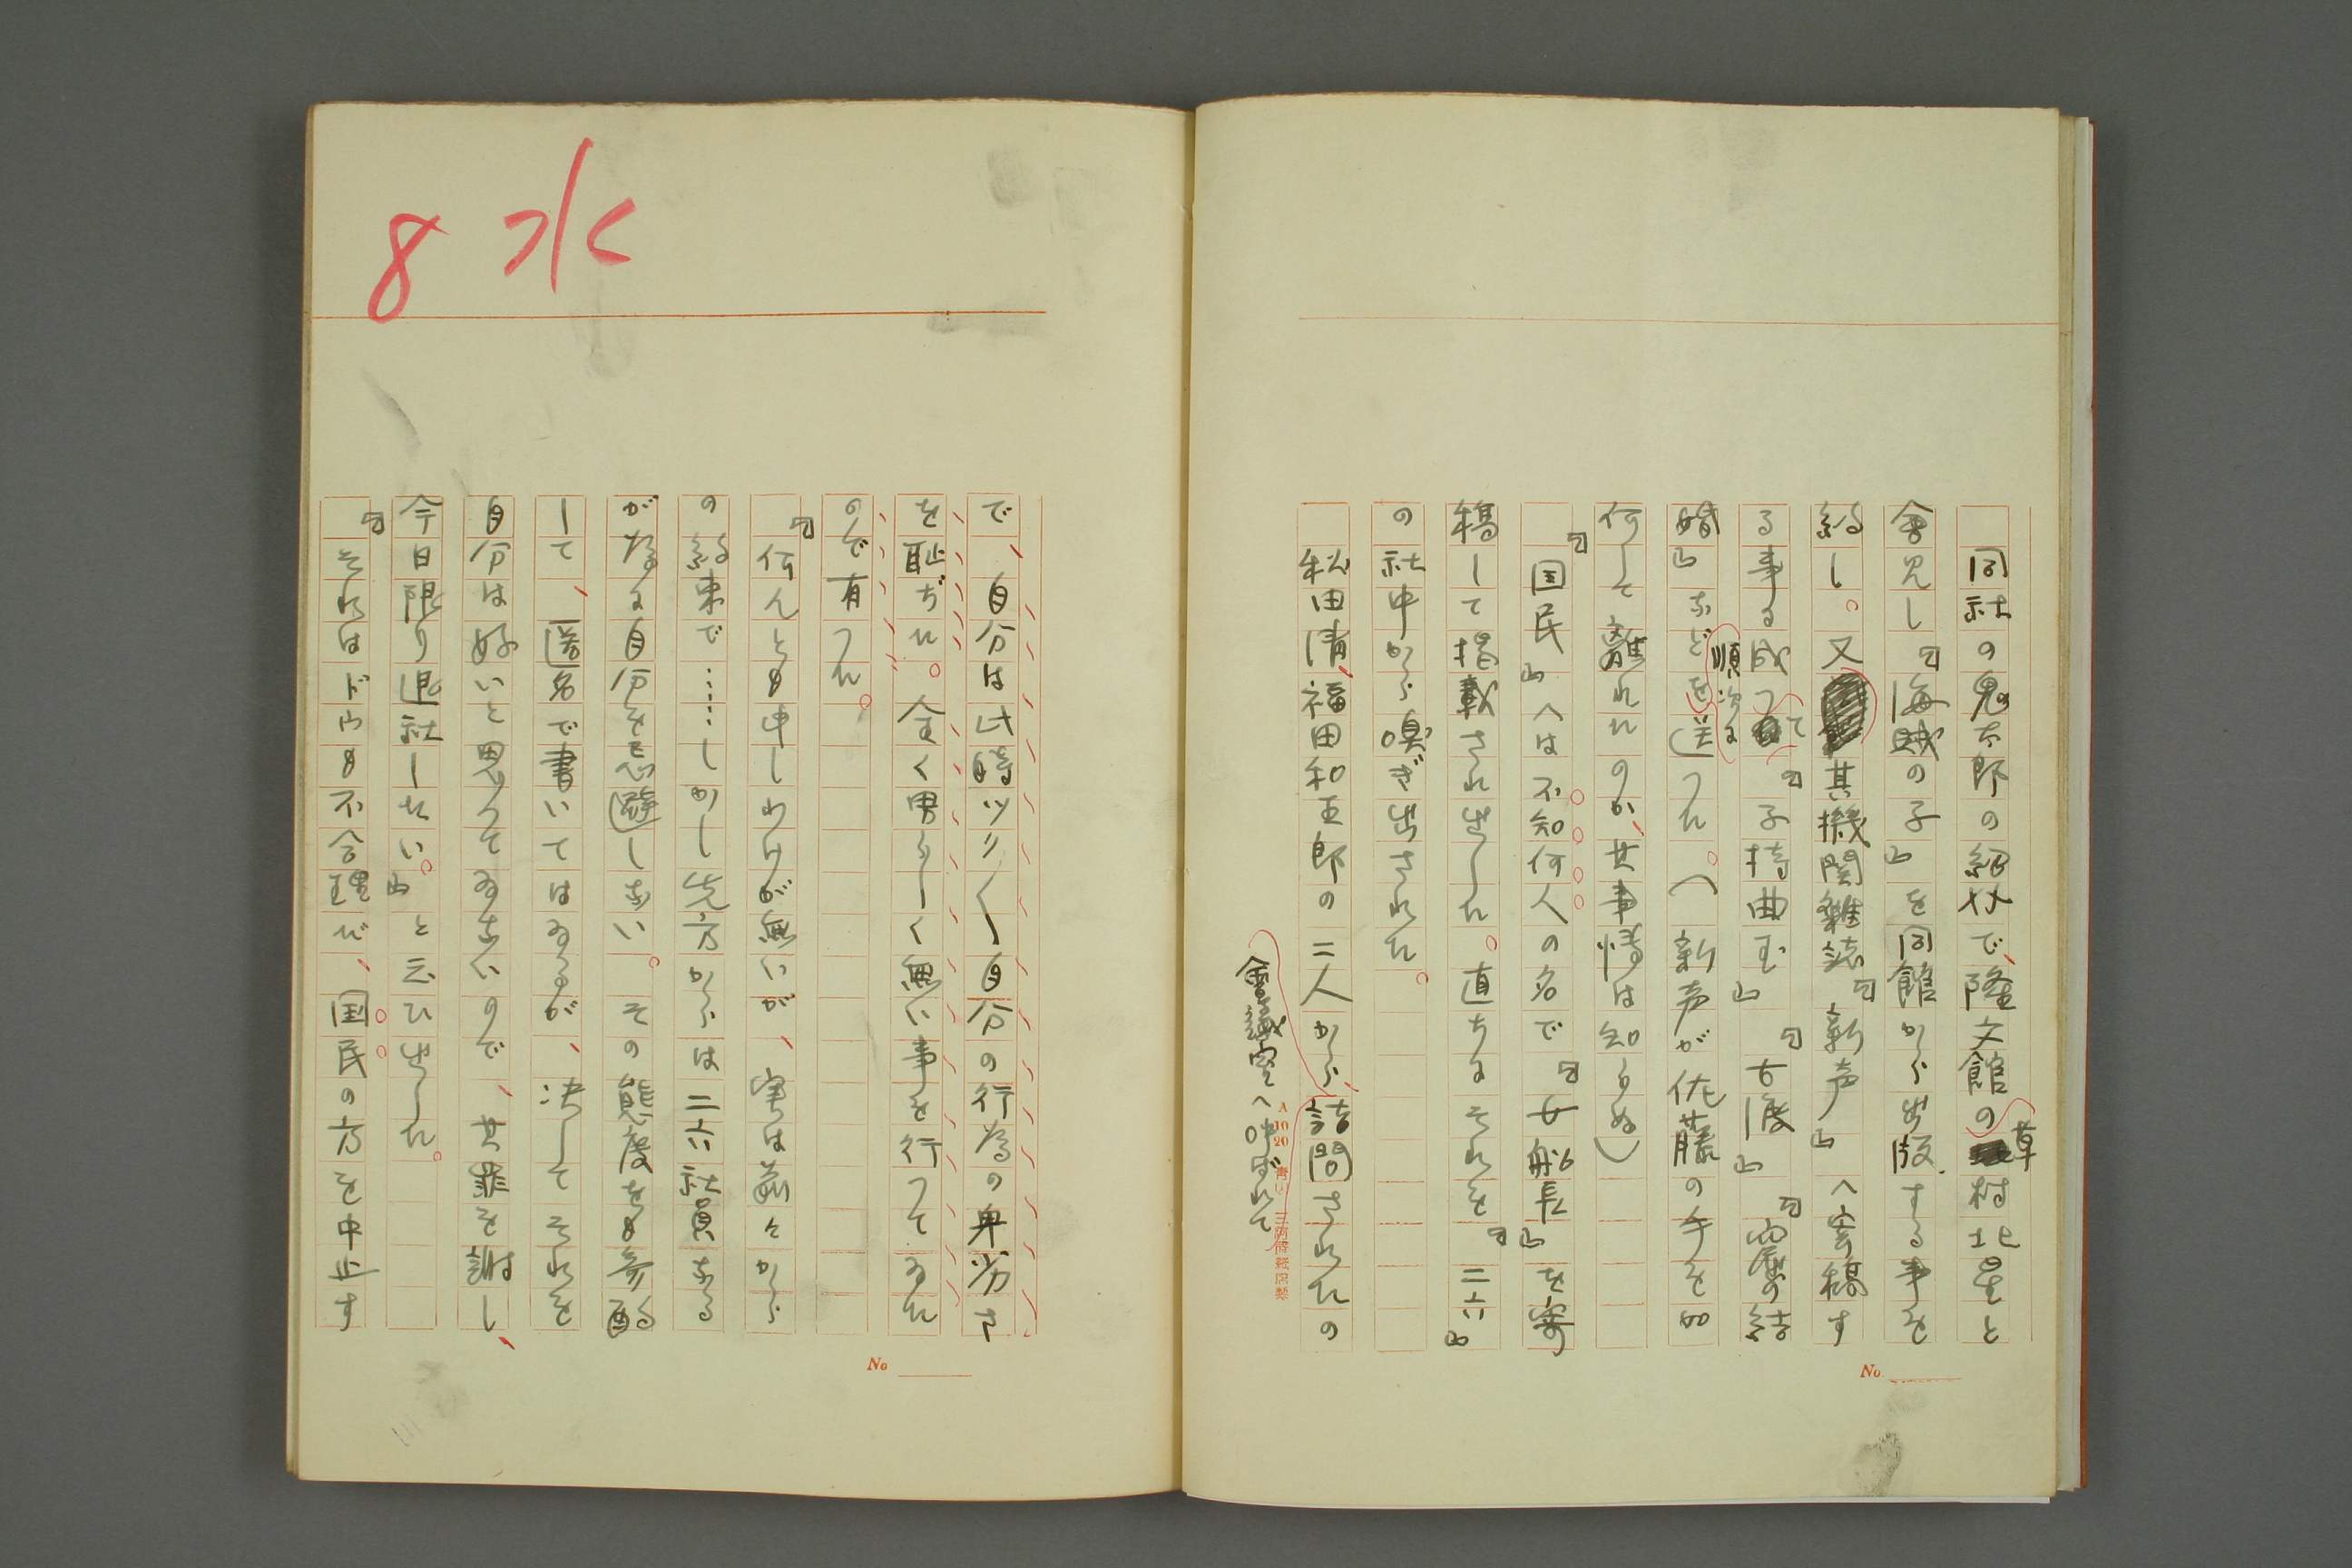 同社の鬼太郎の紹介で、隆文館の草村北星と
会見し『海賊の子』を同館から出版する事を
約し。又其機関雑誌『新声』へ寄稿す
る事に成つて『子持曲玉』『女渡』『の結
婚』などを順次に送つた。（新声が佐藤の手を如
何して離れたのか、其事情は知らぬ）
『国民』へは不知何人の名で『女船長』を寄
稿して掲載され出した。直ちにそれを『二六』
の社中から嗅ぎ出された。
松田清、福田和五郎の二人から、会議室へ呼ばれて詰問されたの
A 10 20
No
水
8
で、自分は此時ツリ〳〵自分の行為の卑劣さ
を恥ぢた。全く男らしく無い事を行つてゐた
ので有つた。
『何んとも申しわけが無いが、実は前々から
の約束で……しかし先方からは二六社員なる
が為に自分を忌避しない。その態度をも参酌
して、匿名で書いてはゐるが、決してそれを
自分は好いと思つてゐないので、其罪を謝し、
今日限り退社したい。』と云ひ出した。
『それはドウも不合理だ、国民の方を中止す
No